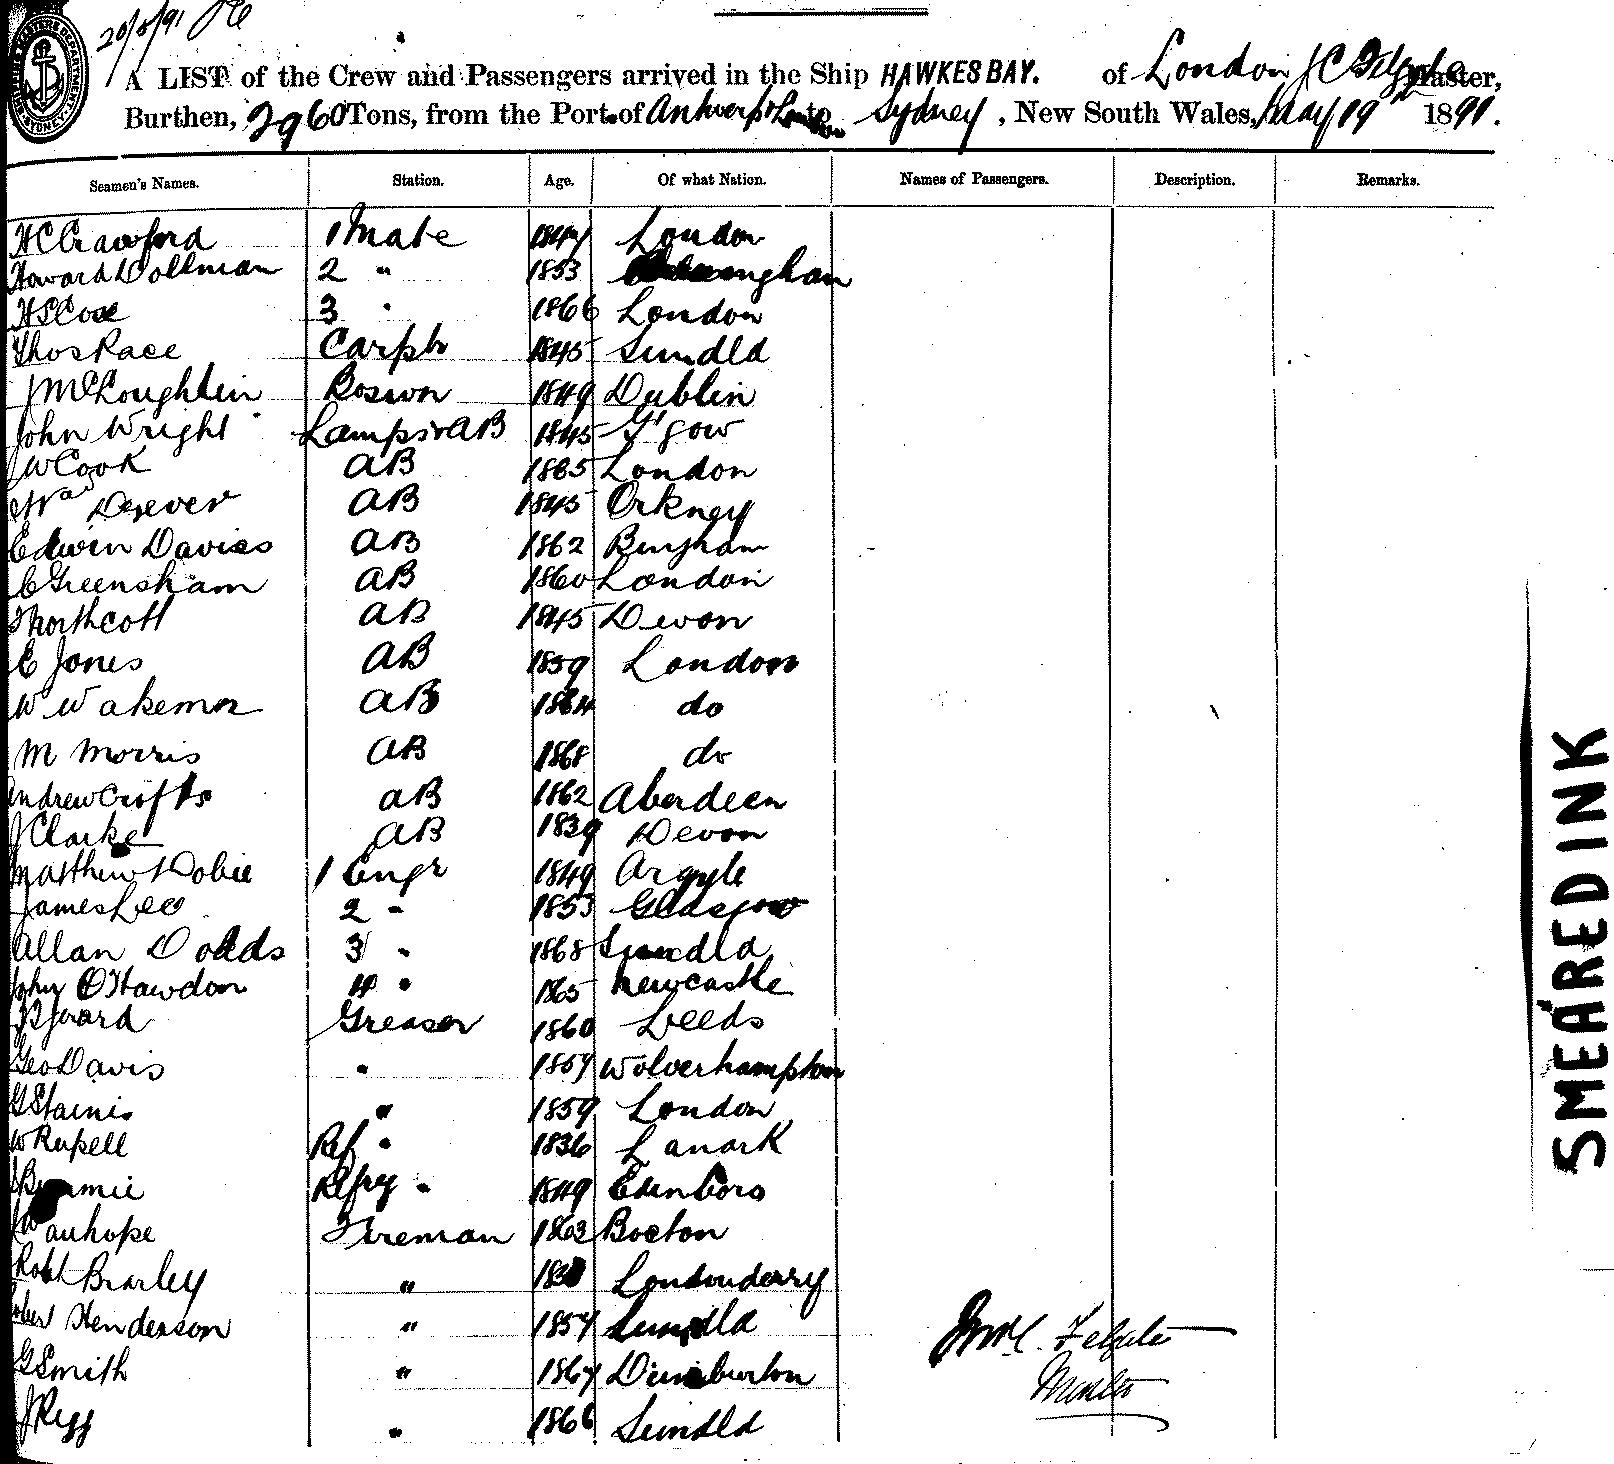 20/5/91
A LIST of the Crew and Passengers arrived in the Ship HAWKES BAY. of London J C Felgate Master,
Burthen, 2960 Tons, from the Port of Antwerp & London to Sydney, New South Wales, May 19th 1891.
Seamen's Names. Station. Age. Of what Nation. Names of Passengers. Description. Remarks.
H C Crawford 1 Mate 1847 London
Howard Dollman 2 " 1853
H S Cox 3 " 1866 London
Thos Race Carptr 1845 Sundld
J McLoughlin Boswn 1849 Dublin
John Wright Lamps & AB 1845 G'gow
J W Cook AB 1865 London
Wm Drever AB 1845 Orkney
Edwin Davies AB 1862 Birgham
C Greensham AB 1860 London
T Northcott AB 1845 Devon
E Jones AB 1859 London
W Wakemn AB 1864 do
M Morris AB 1868 do
Andrew Crofts AB 1862 Aberdeen
J Clarke AB 1839 Devon
Matthew Dobie 1 Engr 1849 Argyle
James Lee 2 " 1853 Glasgow
Allan Dodds 3 " 1868 Sundld
John O Hawdon 4 " 1865 Newcastle
Greaser 1860 Leeds
Geo Davis " 1857 Wolverhampton
G Stainis " 1859 London
W Russell Ref " 1836 Lanark
Refrg " 1849 Edinboro
Wauhope Fireman 1863 Boston
Robt Brarley " Londonderry
Robert Henderson " 1857 Sundld
G Smith " 1867 Dumburton
J Rigg " 1866 Sundld
Jno C. Felgate
Master
SMEARED INK